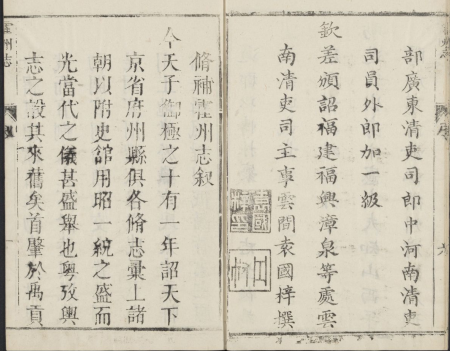 部廣東清吏司郎中河南清吏
司員外郎加一級
欽差頒詔福建福興漳泉等處雲
南清吏司主事雲間袁國梓撰
袁國梓印
脩補霍州志叙
今天子御極之十有一年詔天下
京省府州縣俱各脩志彙上諸
朝以附史舘用昭一統之盛而
光當代之儀甚盛舉也粤攷輿
志之設其來舊矣首肇於禹貢
霍州志